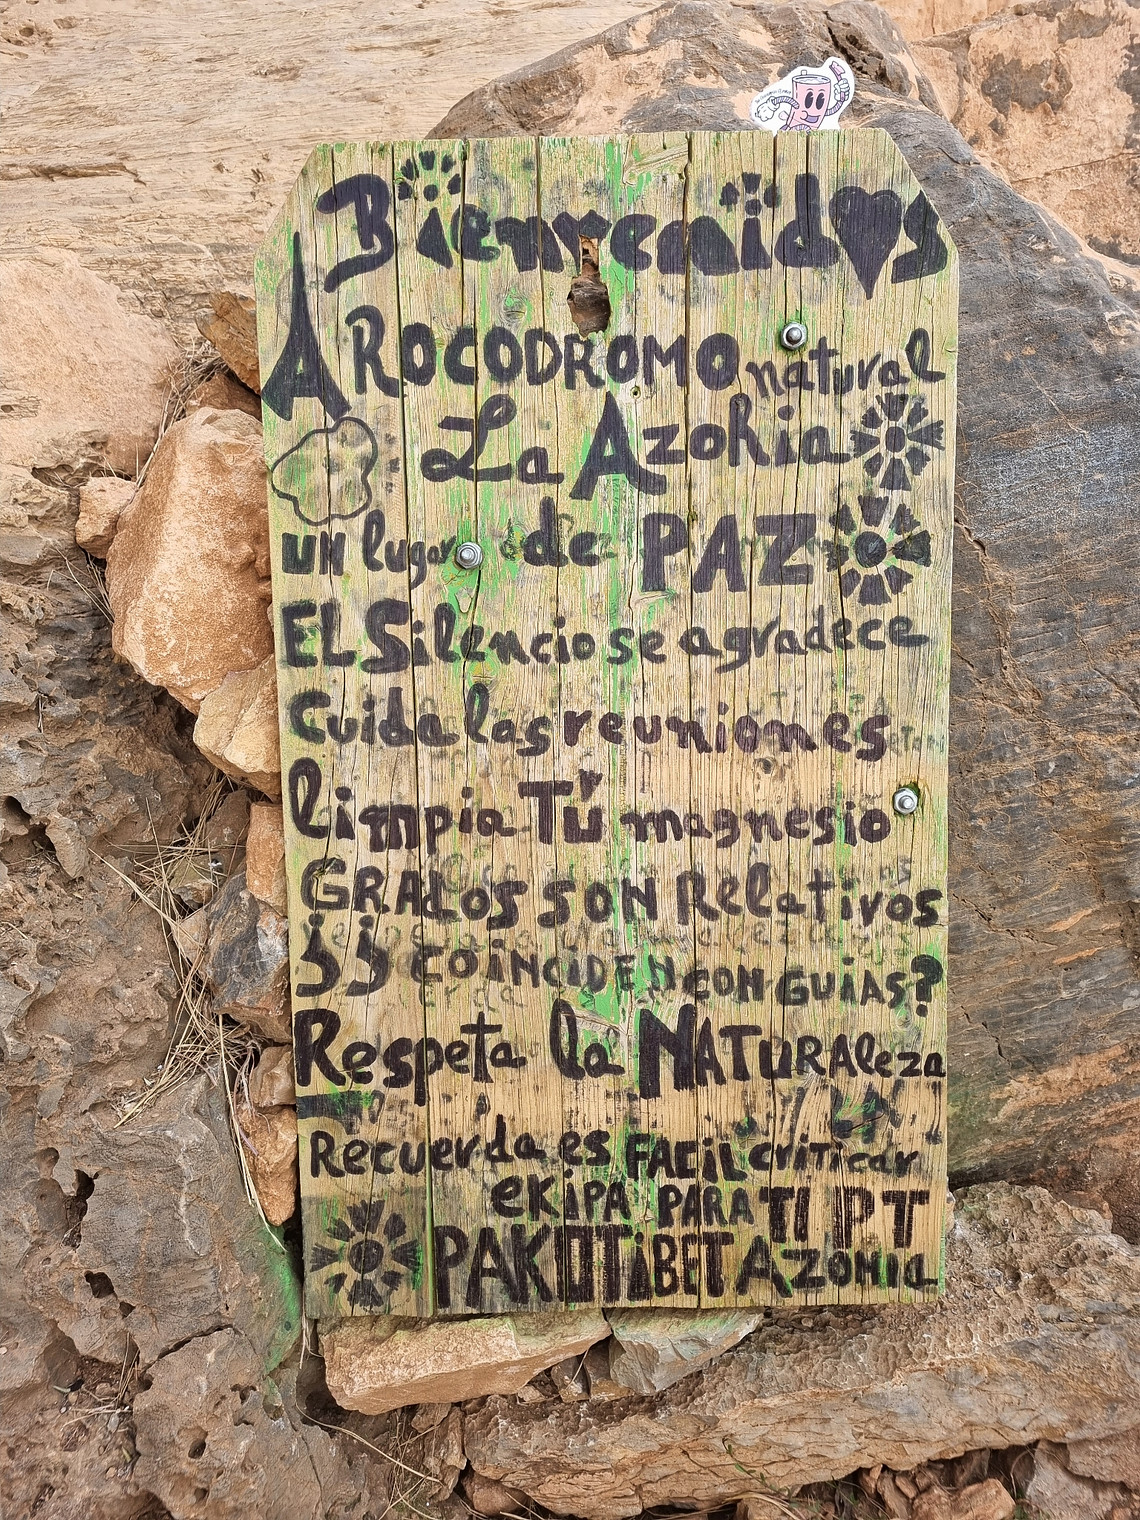 Bienvenidos
A ROCODROMO natural
La Azohia
UN lugar de PAZ
EL Silencio se agradece
Cuida las reuniones
limpia Tú magnesio
GRAdos SON Relativos
¡¡ COiNCiDEN CON GUiAS?
Respeta la NATURAleza
Recuerda es FACiL criticar
eKiPA PARA TI PT
PAKOTiBET AZOHia